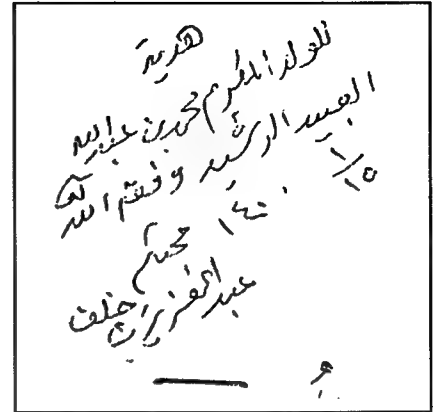 هدية
للولد المكرم محمد بن عبدالله
العبيد الرشيد وفقه الله
١٥/١
١٤٠٠ محبكم
عبدالعزيز بن خلف